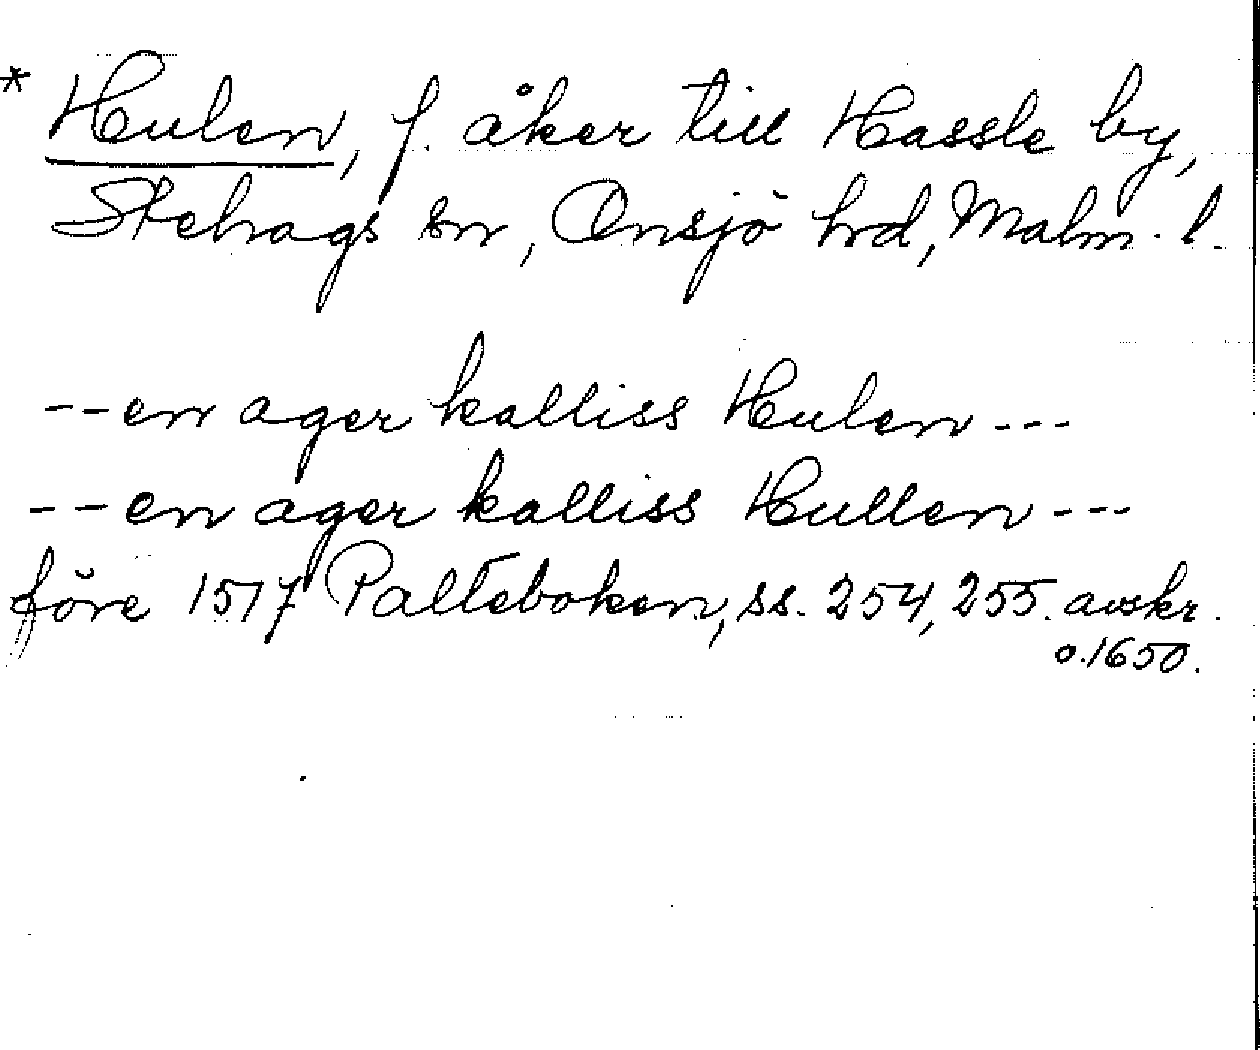 * Hulen, f. åker till Hassle by,
Stehags sn, Onsjö hrd, Malm. l.
--en ager kalliss Hulen---
--en ager kalliss Hullen---
före 1517 Palteboken, ss. 254, 255. avskr.
o. 1650.